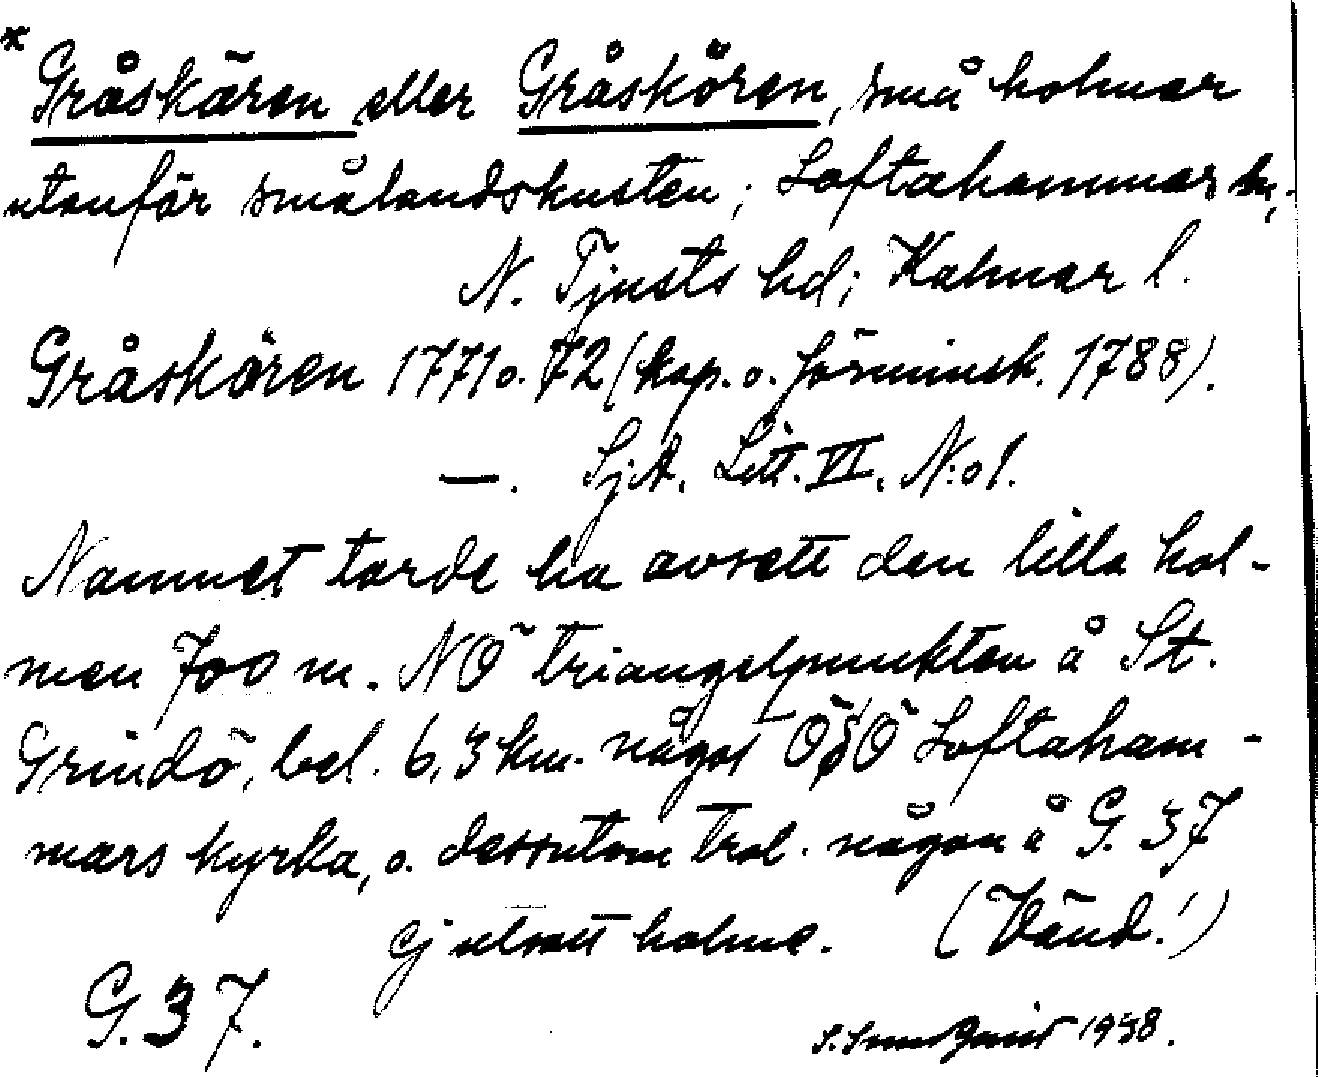 * Gråskären eller Gråskören, små holmar
utanför smålandskusten; Loftahammars sn,
N. Tjusts hd; Kalmar l.
Gråskären 1771 o. 72 (kop. o. förminsk. 1788).
—. Sj.A. Litt. VI. N:o 1.
Namnet torde ha avsett den lilla hol-
men 700 m. NÖ triangelpunkten å St.
Grindö, bel. 6,3 km. något ÖSÖ Loftaham-
mars kyrka, o. dessutom trol. någon å G. 37
ej utsatt holme. (Vänd!)
G. 37.
1938.